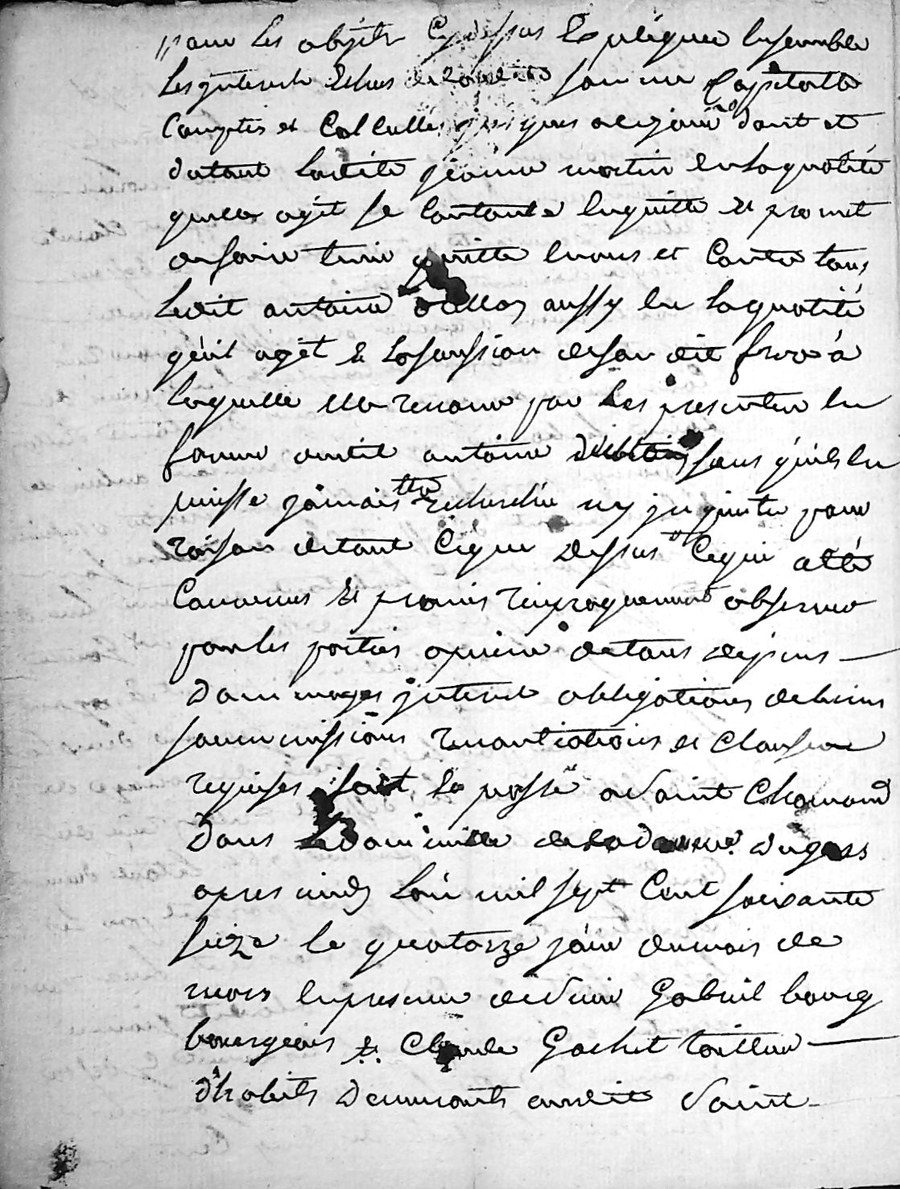 pour les objets cy dessus Expliqués Ensemble
les jnterest Echus de la ditte somme Cappitalle
Comptés et Calculles jusques a ce jour dont et
du tout laditte jeanne martin En la qualité
quelle agit se Contante En quitte Et promet
en faire tenir quitte Envers et Contre tous
Ledit antoine aussy En la qualité
quil agit Et la sudion de son dit frere a
laquelle Elle renonce par Les presentes En
faveur audit antoine sans quil En
puisse jamais Etre recherché ny jnquieté pour
raison de tout Ce que dessus Ce qui a Eté
Convenus Et promis reciproquement observer
par les parties a peine de tous depens
Dommages jnterest obligations de biens
soummissions renontiations et Clauses
requises fait Et passé a Saint Chamond
Dans Le Domicille de la Demlle Dugas
apres midy Lan mil sept Cent soixante
seize le quatorze jour du mois de
mars En presence de Sieur Gabriel bourg
bourgeois Et Claude Gachet tailleur
D'habits Demeurants audit Saint